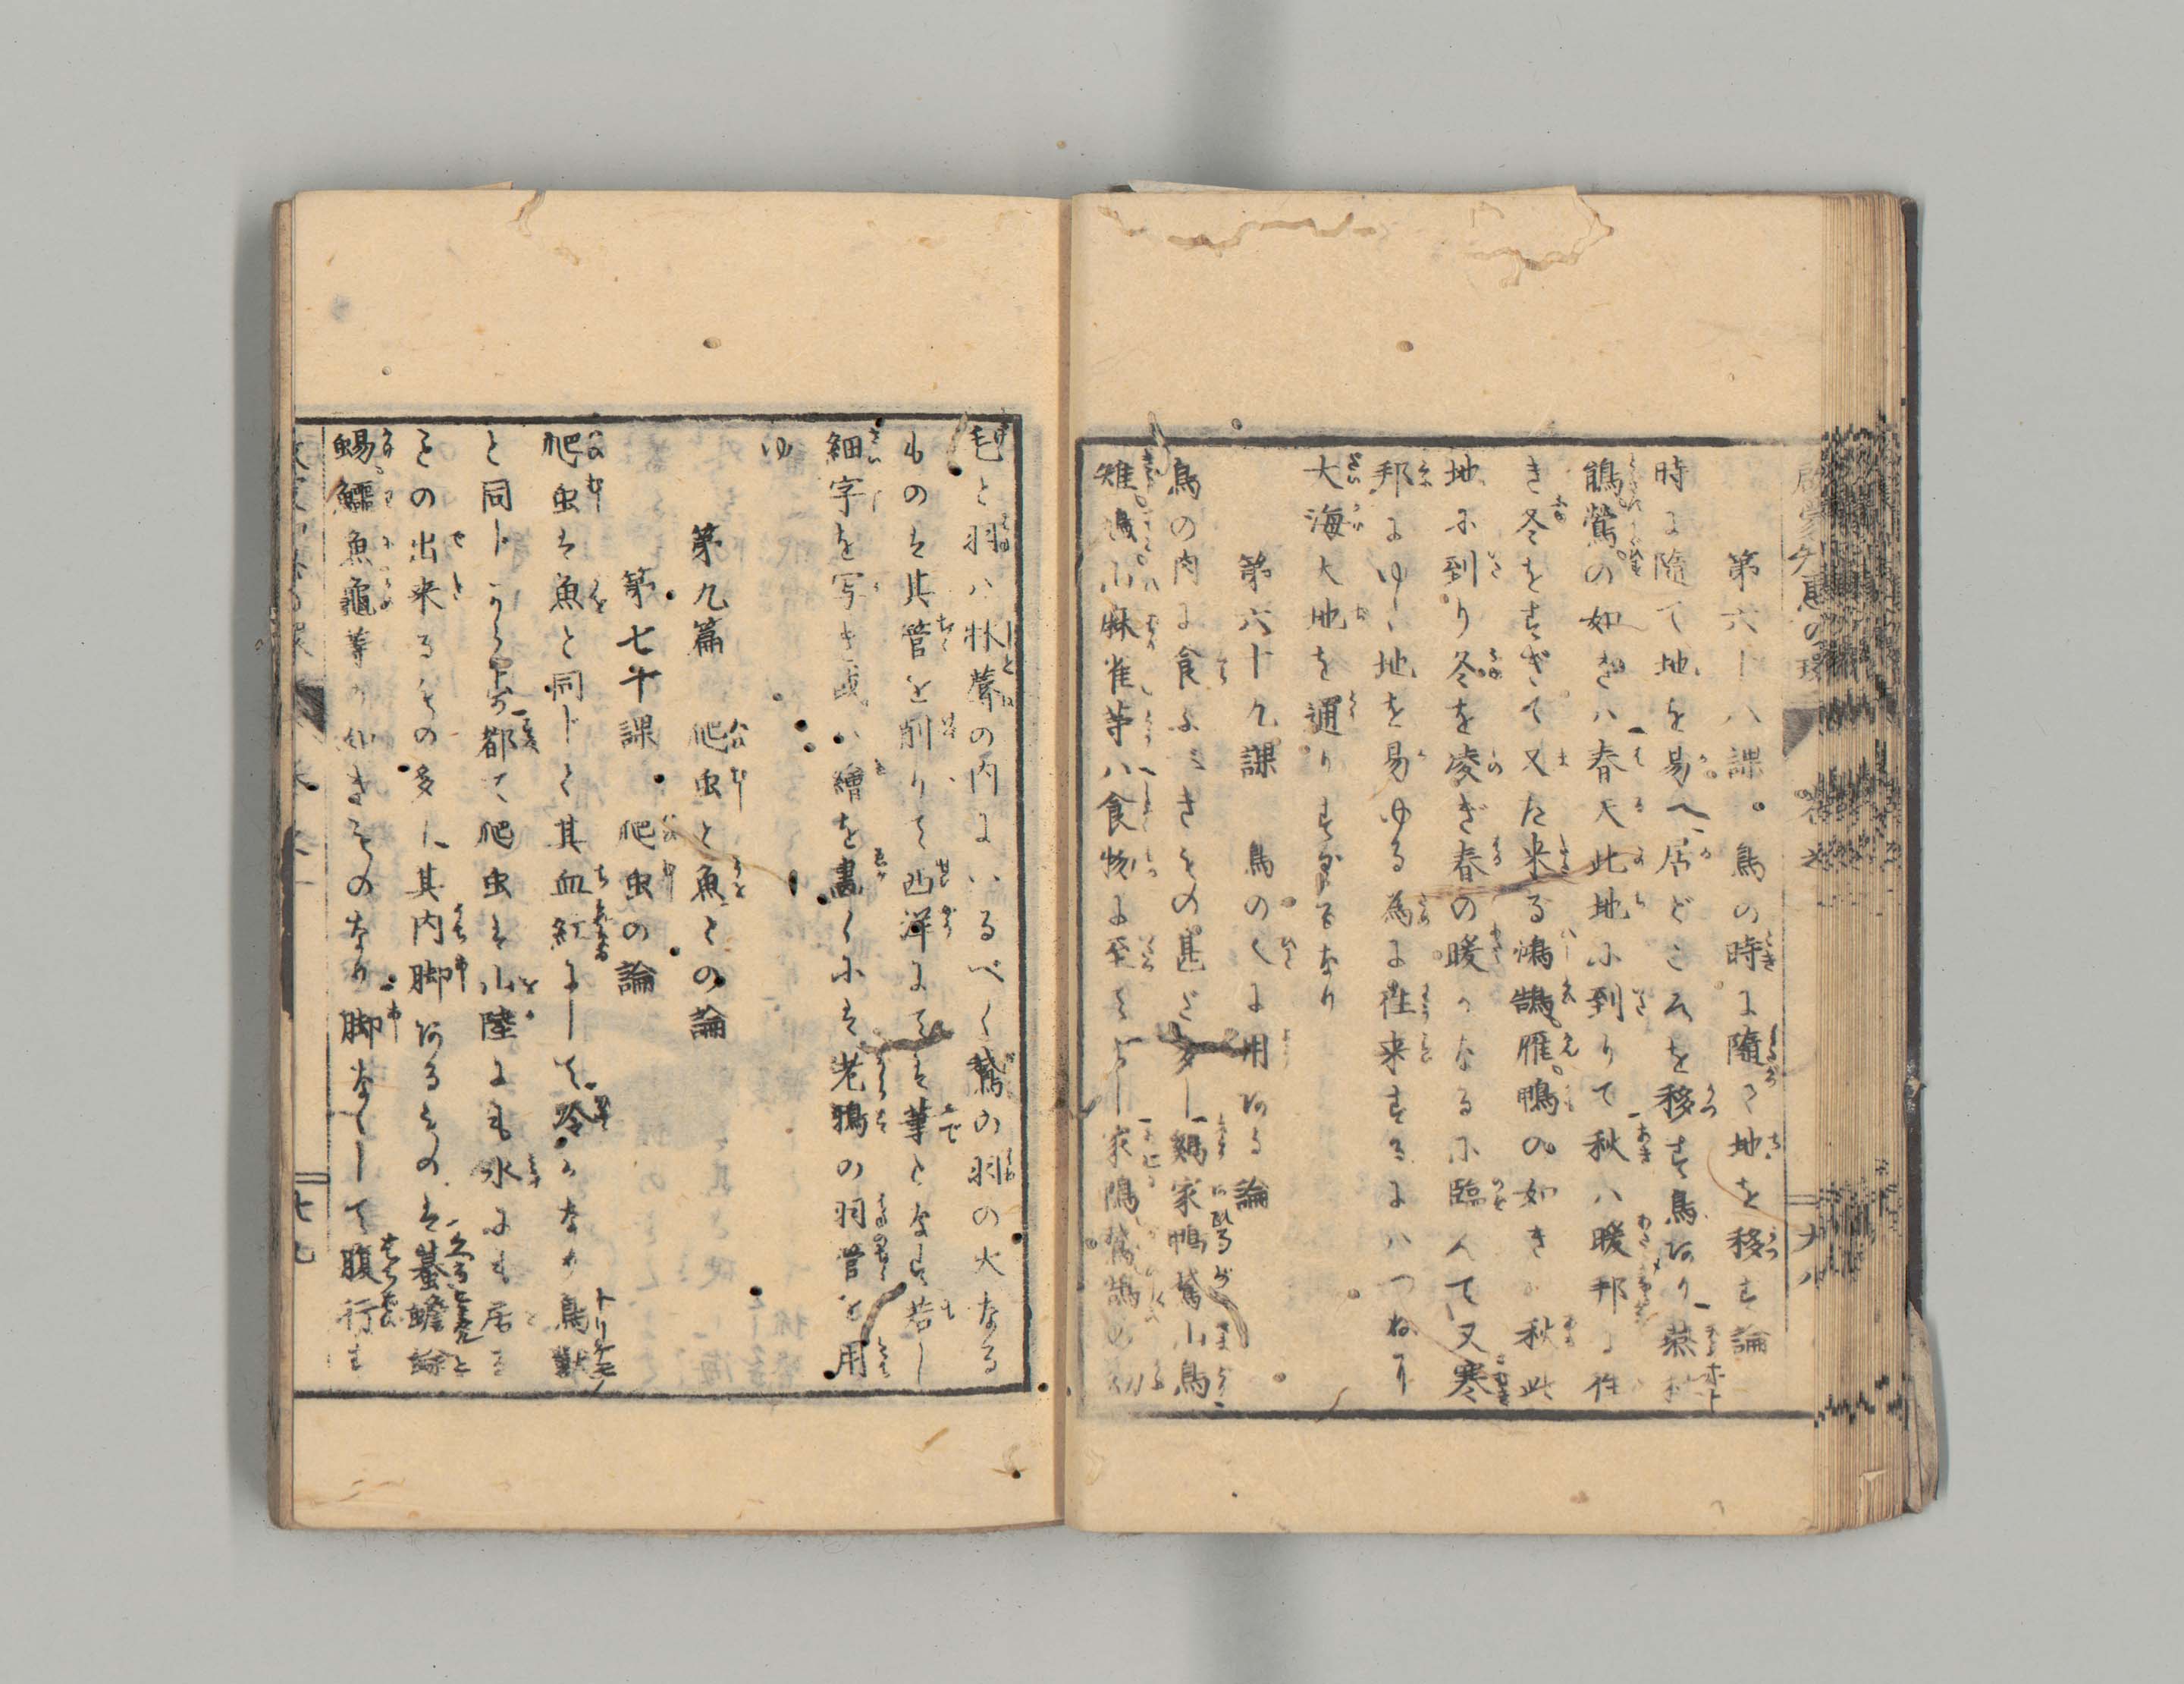 第六十八課。鳥の時に隨て地を移す論
時に隨て地を易へ居どころを移す鳥あり燕杜
鵑鶯の如きハ春天此地に到りて秋ハ暖邦に往
き冬をすぎて又た来る鴻鵠雁鴨の如きハ秋此
地に到り冬を凌ぎ春の暖かなるに臨んで又寒
邦にゆく地を易ゆる為に往来するにハつねに
大海大地を通りすぐるなり
第六十九課 鳥のくに用ある論
鳥の肉に食ふべきもの甚だ多し鶏家鴨鵞小鳥
雉鴻小麻雀等ハ食物に至てよし家鴨鵞鵠の幼
毛と羽ハ牀蓐の内にいるべく鵞の羽の大なる
ものは其管を削りて西洋にては筆となす若し
細字を写き或ハ繪を畫くには老鴉の羽管を用
ゆ
第九篇 爬虫と魚との論
第七十課 爬虫の論
爬虫は魚と同じく其血紅にして冷かなり鳥獣
と同じからず都て爬虫は陸にも水にも居る
もの出来るもの多し其内脚あるものは蟇蟾蜍
蜴鱷魚龜等の如きものなり脚なくして腹行す
啓蒙知恵の環
六八
七九